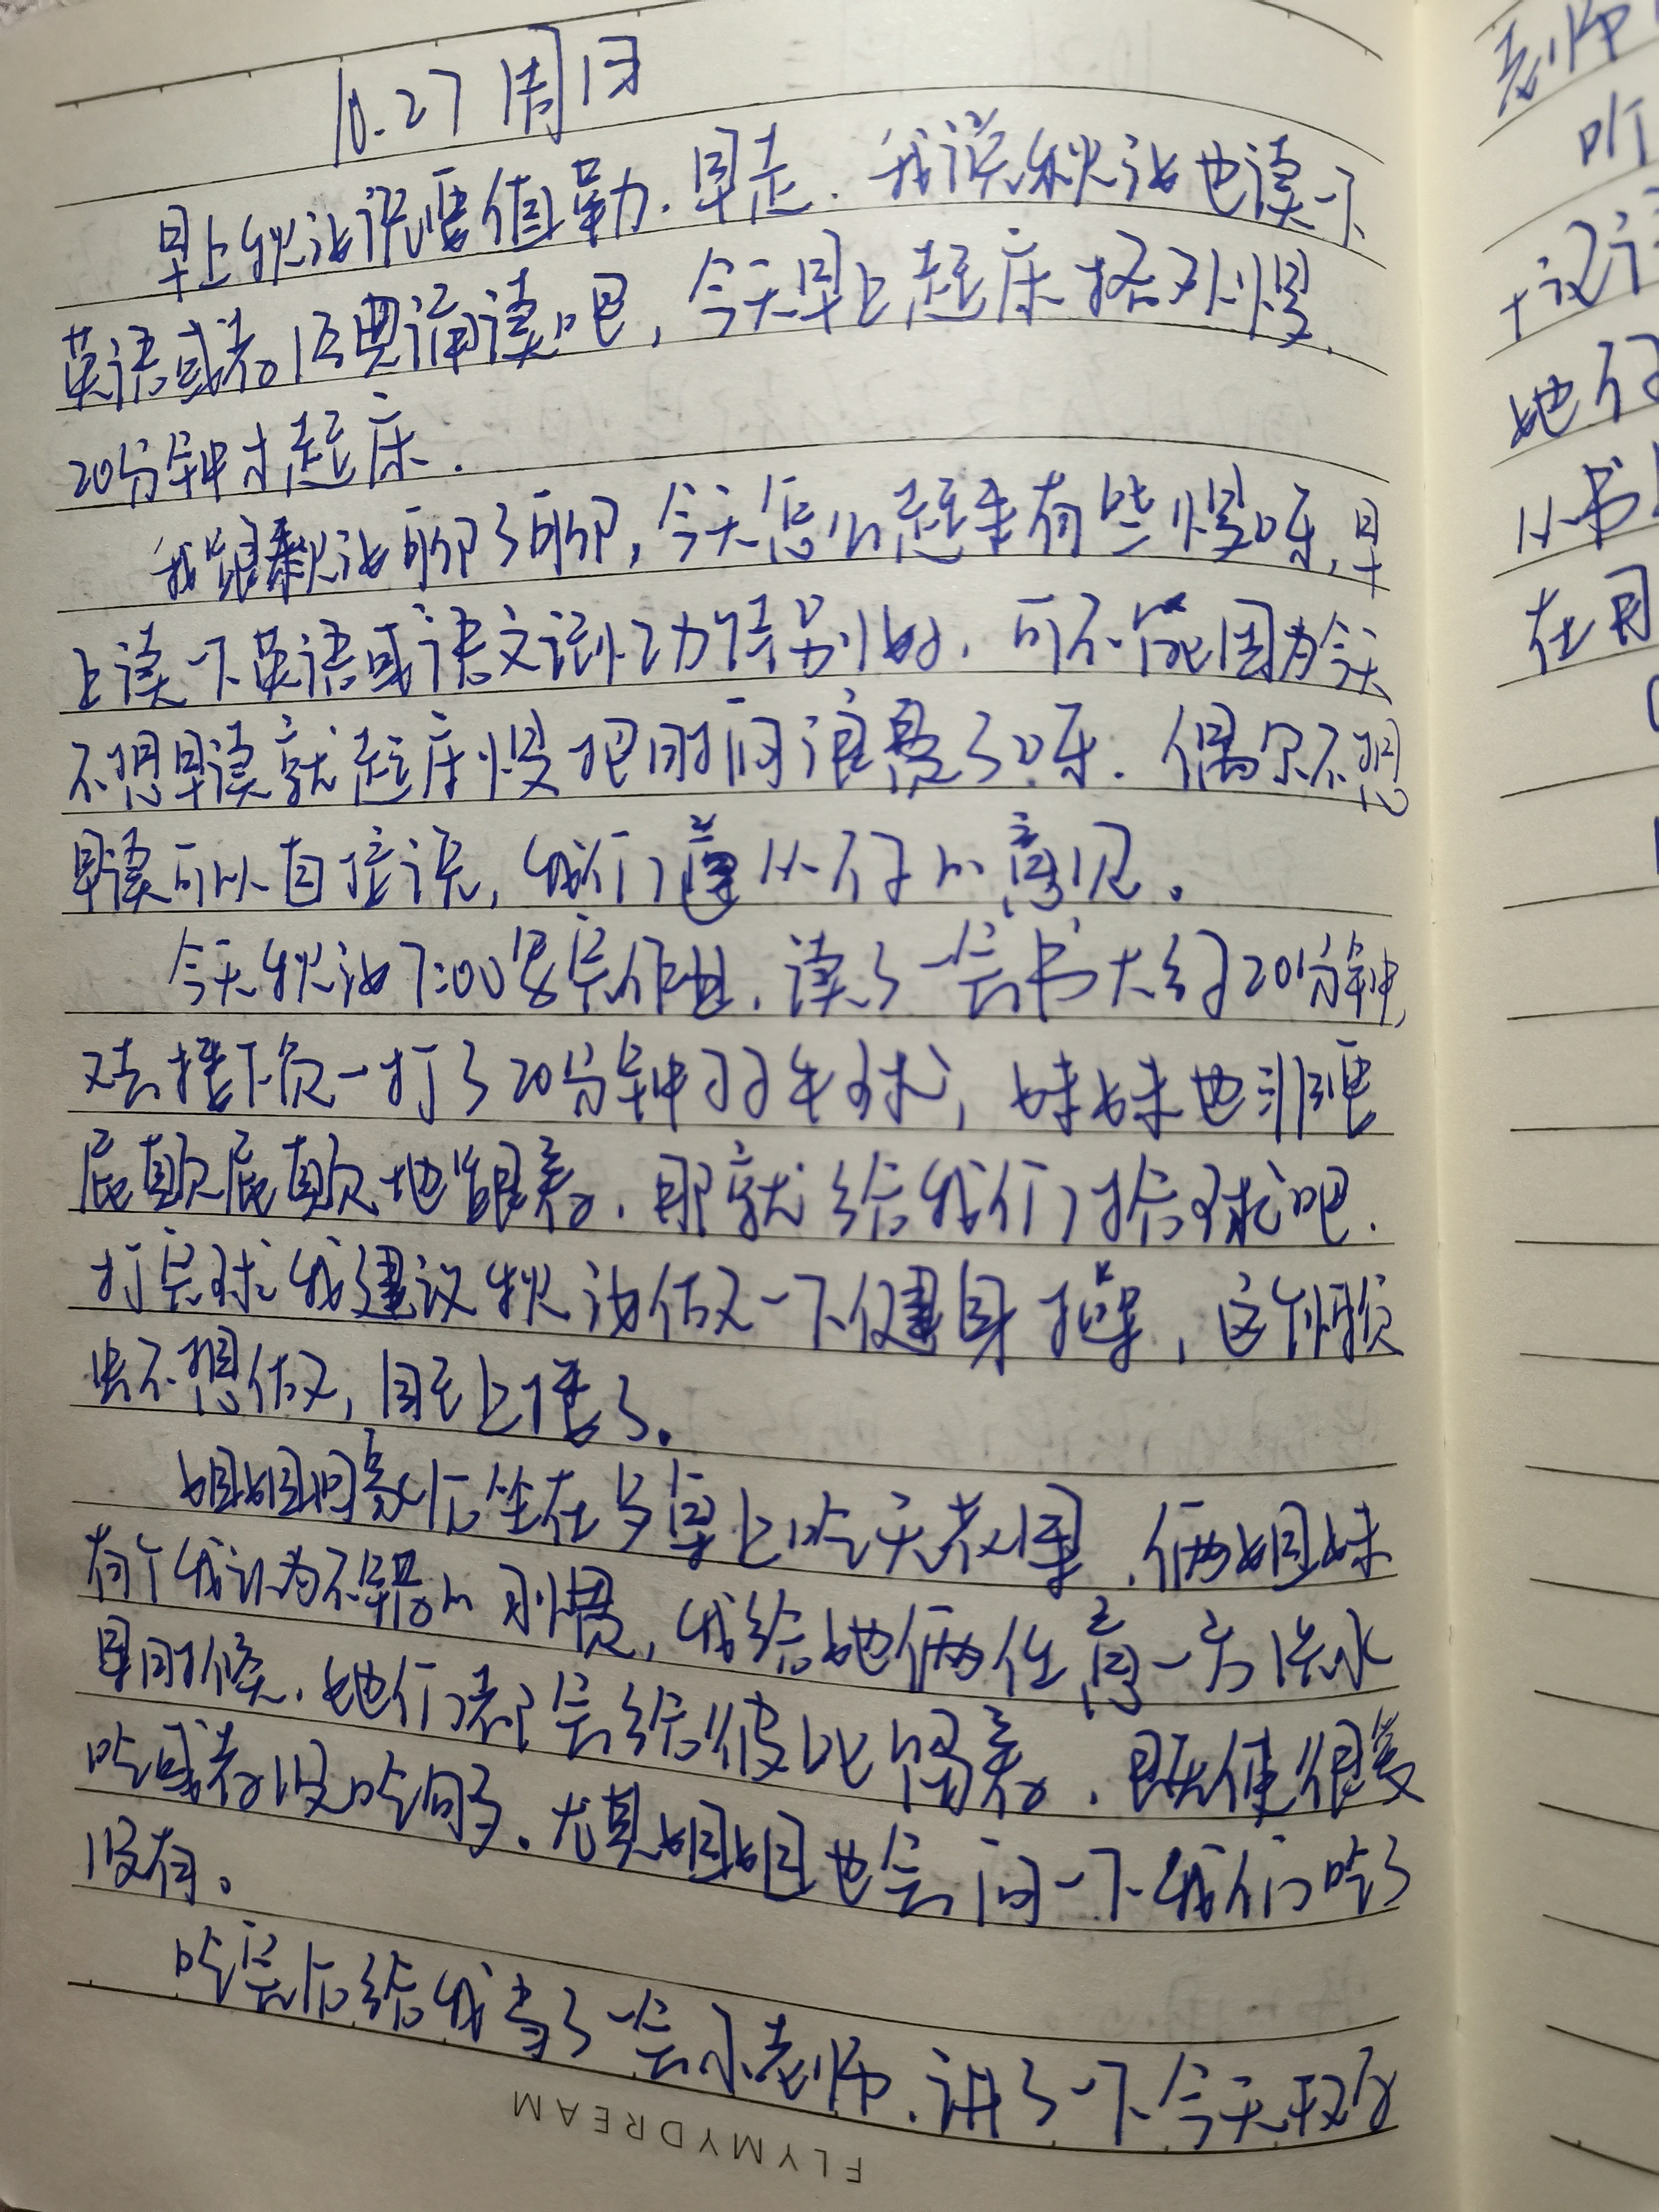 10.27 周1日
早上秋汝说要值勤.早走.我说秋汝也读一下
英语或者经典诵读吧,今天早上起床格外慢.
20分钟才起床.
我跟秋汝聊了聊,今天怎么起来有些慢呀,早
上读一下英语或语文记忆力特别好.可不能因为今天
不想早读就起床慢把时间浪费了呀.偶尔不想
早读可以直接说,我们遵从你的意见。
今天秋汝7:00多完作业.读了一会书大约20分钟,
又去楼下负一打了20分钟羽毛球,妹妹也非要
屁颠屁颠地跟着.那就给我们拾球吧.
打完球我建议秋汝做一下健身操,这个懒
虫不想做,直至上楼了.
姐姐回家后坐在步凳上吃完苹果.俩姐妹
有个我认为不错的习惯,我给她俩任意一方洗水
果时候.她们都会给彼此留着.既使很爱
吃或者没吃够.尤其姐姐也会问一下我们吃了
没有。
吃完后给我当了一会小老师.讲了一下今天
FLYMYDREAM
老师
听
她们
小书
在